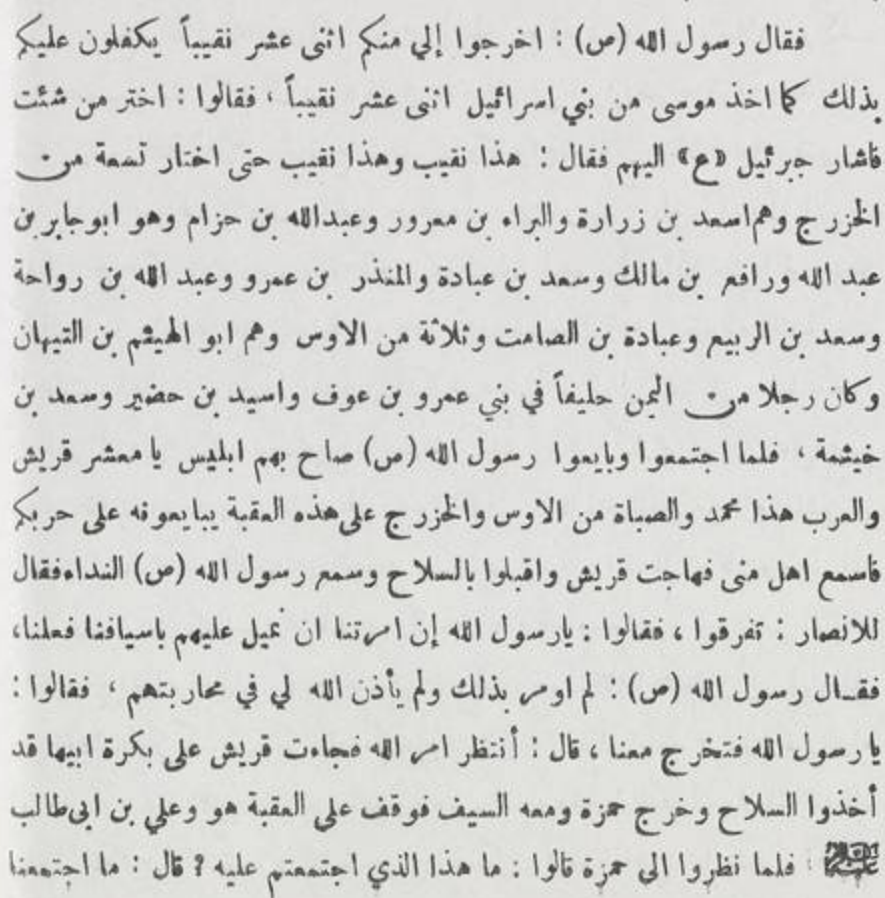 فقال رسول الله (ص) : اخرجوا إلي منكم اثنى عشر نقيباً يكفلون عليكم
بذلك كما اخذ موسى من بني اسرائيل اثنى عشر نقيباً ، فقالوا : اختر من شئت
فاشار جبرئيل «ع» اليهم فقال : هذا نقيب وهذا نقيب حتى اختار تسعة من
الخزرج وهم اسعد بن زرارة والبراء بن معرور وعبدالله بن حزام وهو ابو جابر بن
عبد الله ورافع بن مالك وسعد بن عبادة والمنذر بن عمرو وعبد الله بن رواحة
وسعد بن الربيع وعبادة بن الصامت وثلاثة من الاوس وهم ابو الهيثم بن التيهان
وكان رجلا من اليمن حليفاً في بني عمرو بن عوف واسيد بن حضير وسعد بن
خيثمة ، فلما اجتمعوا وبايعوا رسول الله (ص) صاح بهم ابليس يا معشر قريش
والعرب هذا محمد والصباة من الاوس والخزرج على هذه العقبة يبايعونه على حربكم
فاسمع اهل منى فهاجت قريش واقبلوا بالسلاح وسمع رسول الله (ص) النداء فقال
للانصار : تفرقوا ، فقالوا : يارسول الله إن امرتنا ان نميل عليهم باسيافنا فعلنا،
فقال رسول الله (ص) : لم اومر بذلك ولم يأذن الله لي في محاربتهم ، فقالوا :
يا رسول الله فتخرج معنا ، قال : أنتظر امر الله فجاءت قريش على بكرة ابيها قد
أخذوا السلاح وخرج حمزة ومعه السيف فوقف على العقبة هو وعلي بن ابى طالب
فلما نظروا الى حمزة قالوا : ما هذا الذي اجتمعتم عليه ؟ قال : ما اجتمعنا